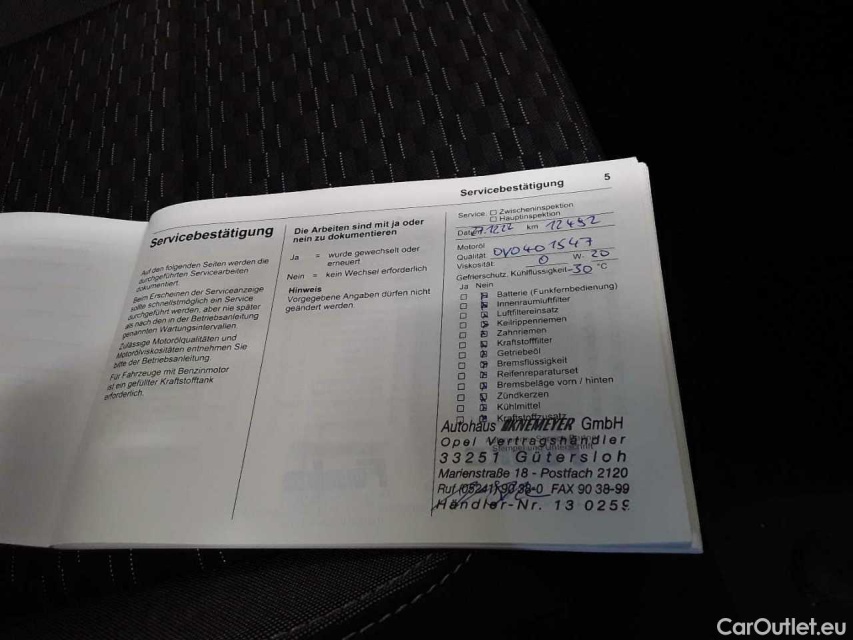 Servicebestätigung
Auf den folgenden Seiten werden die
durchgeführten Servicearbeiten
dokumentiert.
Beim Erscheinen der Serviceanzeige
sollte schnellstmöglich ein Service
durchgeführt werden, aber nie später
als nach den in der Betriebsanleitung
genannten Wartungsintervallen.
Zulässige Motorölqualitäten und
Motorölviskositäten entnehmen Sie
bitte der Betriebsanleitung.
Für Fahrzeuge mit Benzinmotor
ist ein gefüllter Kraftstofftank
erforderlich.
Die Arbeiten sind mit ja oder
nein zu dokumentieren
Ja = wurde gewechselt oder
erneuert
Nein = kein Wechsel erforderlich
Hinweis
Vorgegebene Angaben dürfen nicht
geändert werden.
Servicebestätigung 5
Service: Zwischeninspektion
Hauptinspektion
Datum 27.12.22 km 12492
Motoröl
Qualität 0V0401547
Viskosität 0 W- 20
Gefrierschutz, Kühlflüssigkeit -30 °C
Ja Nein
Batterie (Funkfernbedienung)
Innenraumluftfilter
Luftfiltereinsatz
Keilrippenriemen
Zahnriemen
Kraftstofffilter
Getriebeöl
Bremsflüssigkeit
Reifenreparaturset
Bremsbeläge vorn / hinten
Zündkerzen
Kühlmittel
Kraftstoffzusatz
Autohaus KNEMEYER GmbH
Opel Vertragshändler
Stempel und Unterschrift
33251 Gütersloh
Marienstraße 18 - Postfach 2120
Ruf (05241) 90 38-0 FAX 90 38-99
Händler-Nr. 13 0259
CarOutlet.eu